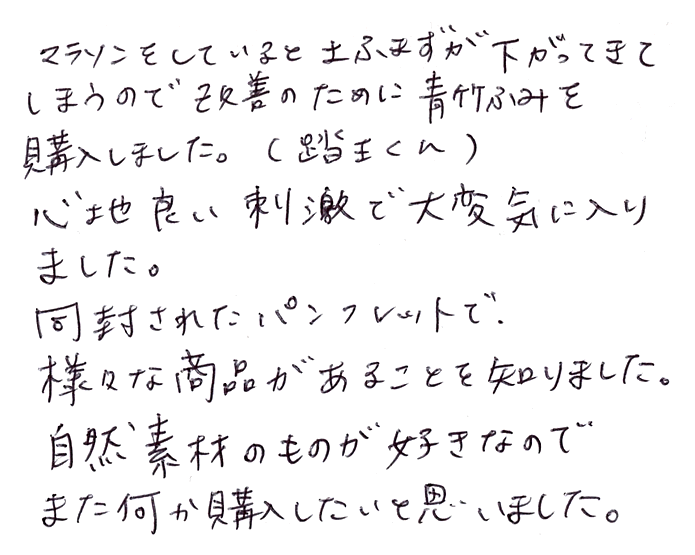 マラソンをしていると土ふまずが下がってきて
しまうので改善のために青竹ふみを
購入しました。(踏王くん)
心地良い刺激で大変気に入り
ました。
同封されたパンフレットで、
様々な商品があることを知りました。
自然素材のものが好きなので
また何か購入したいと思いました。